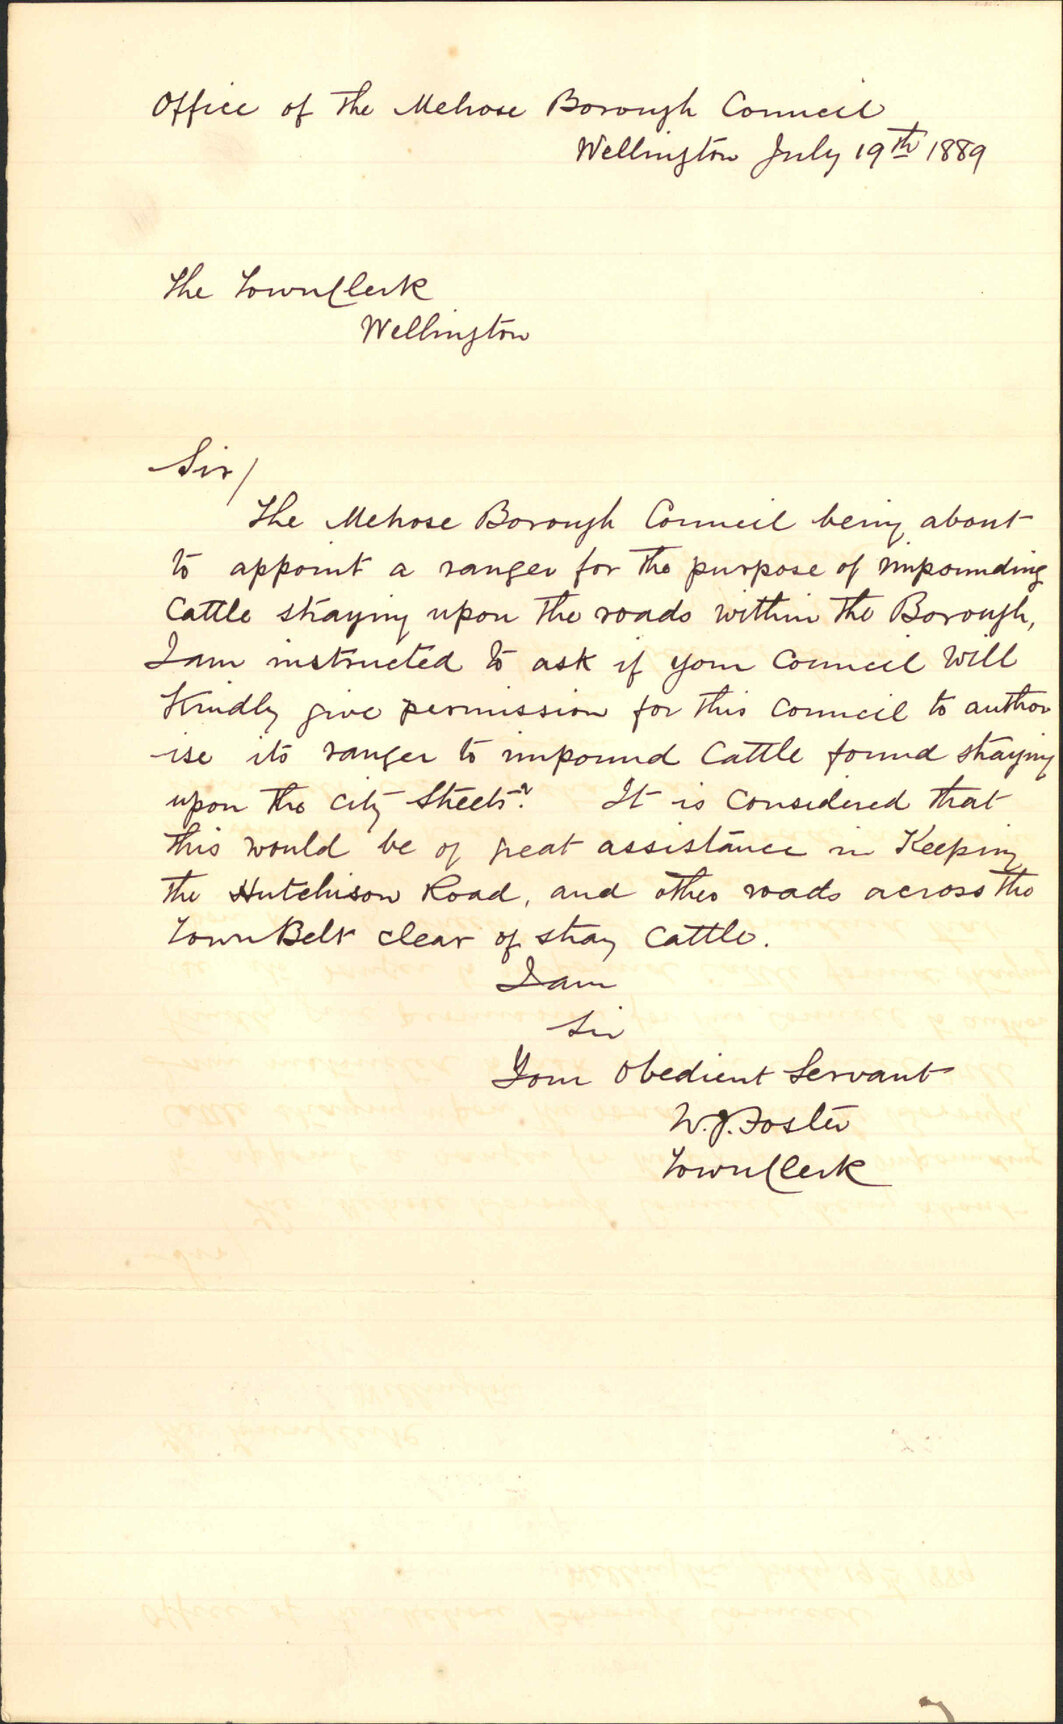 Office of the Melrose Borough Council
Wellington July 19th 1889
The Town Clerk
Wellington
Sir/
The Melrose Borough Council being about
to appoint a ranger for the purpose of impounding
Cattle straying upon the roads within the Borough,
I am instructed to ask if your Council will
Kindly give permission for this Council to author
-ise its ranger to impound Cattle found straying
upon the City Streets? It is Considered that
this would be of great assistance in Keeping
the Hutchison Road, and other roads across the
Town Belt clear of stray Cattle.
I am
Sir
Your Obedient Servant
W. J. Foster
Town Clerk